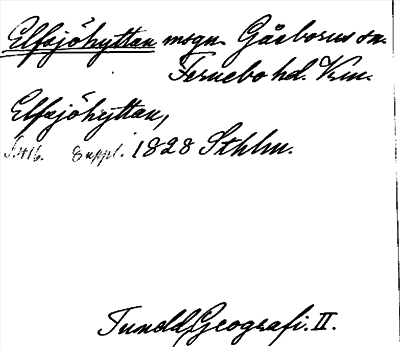 Elfsjöhyttan msgn. Gåsborns sn.
Fernebo hd. Vrm.
Elfsjöhyttan,
S. 416. Suppl. 1828 Sthlm.
Tuneld, Geografi. II.